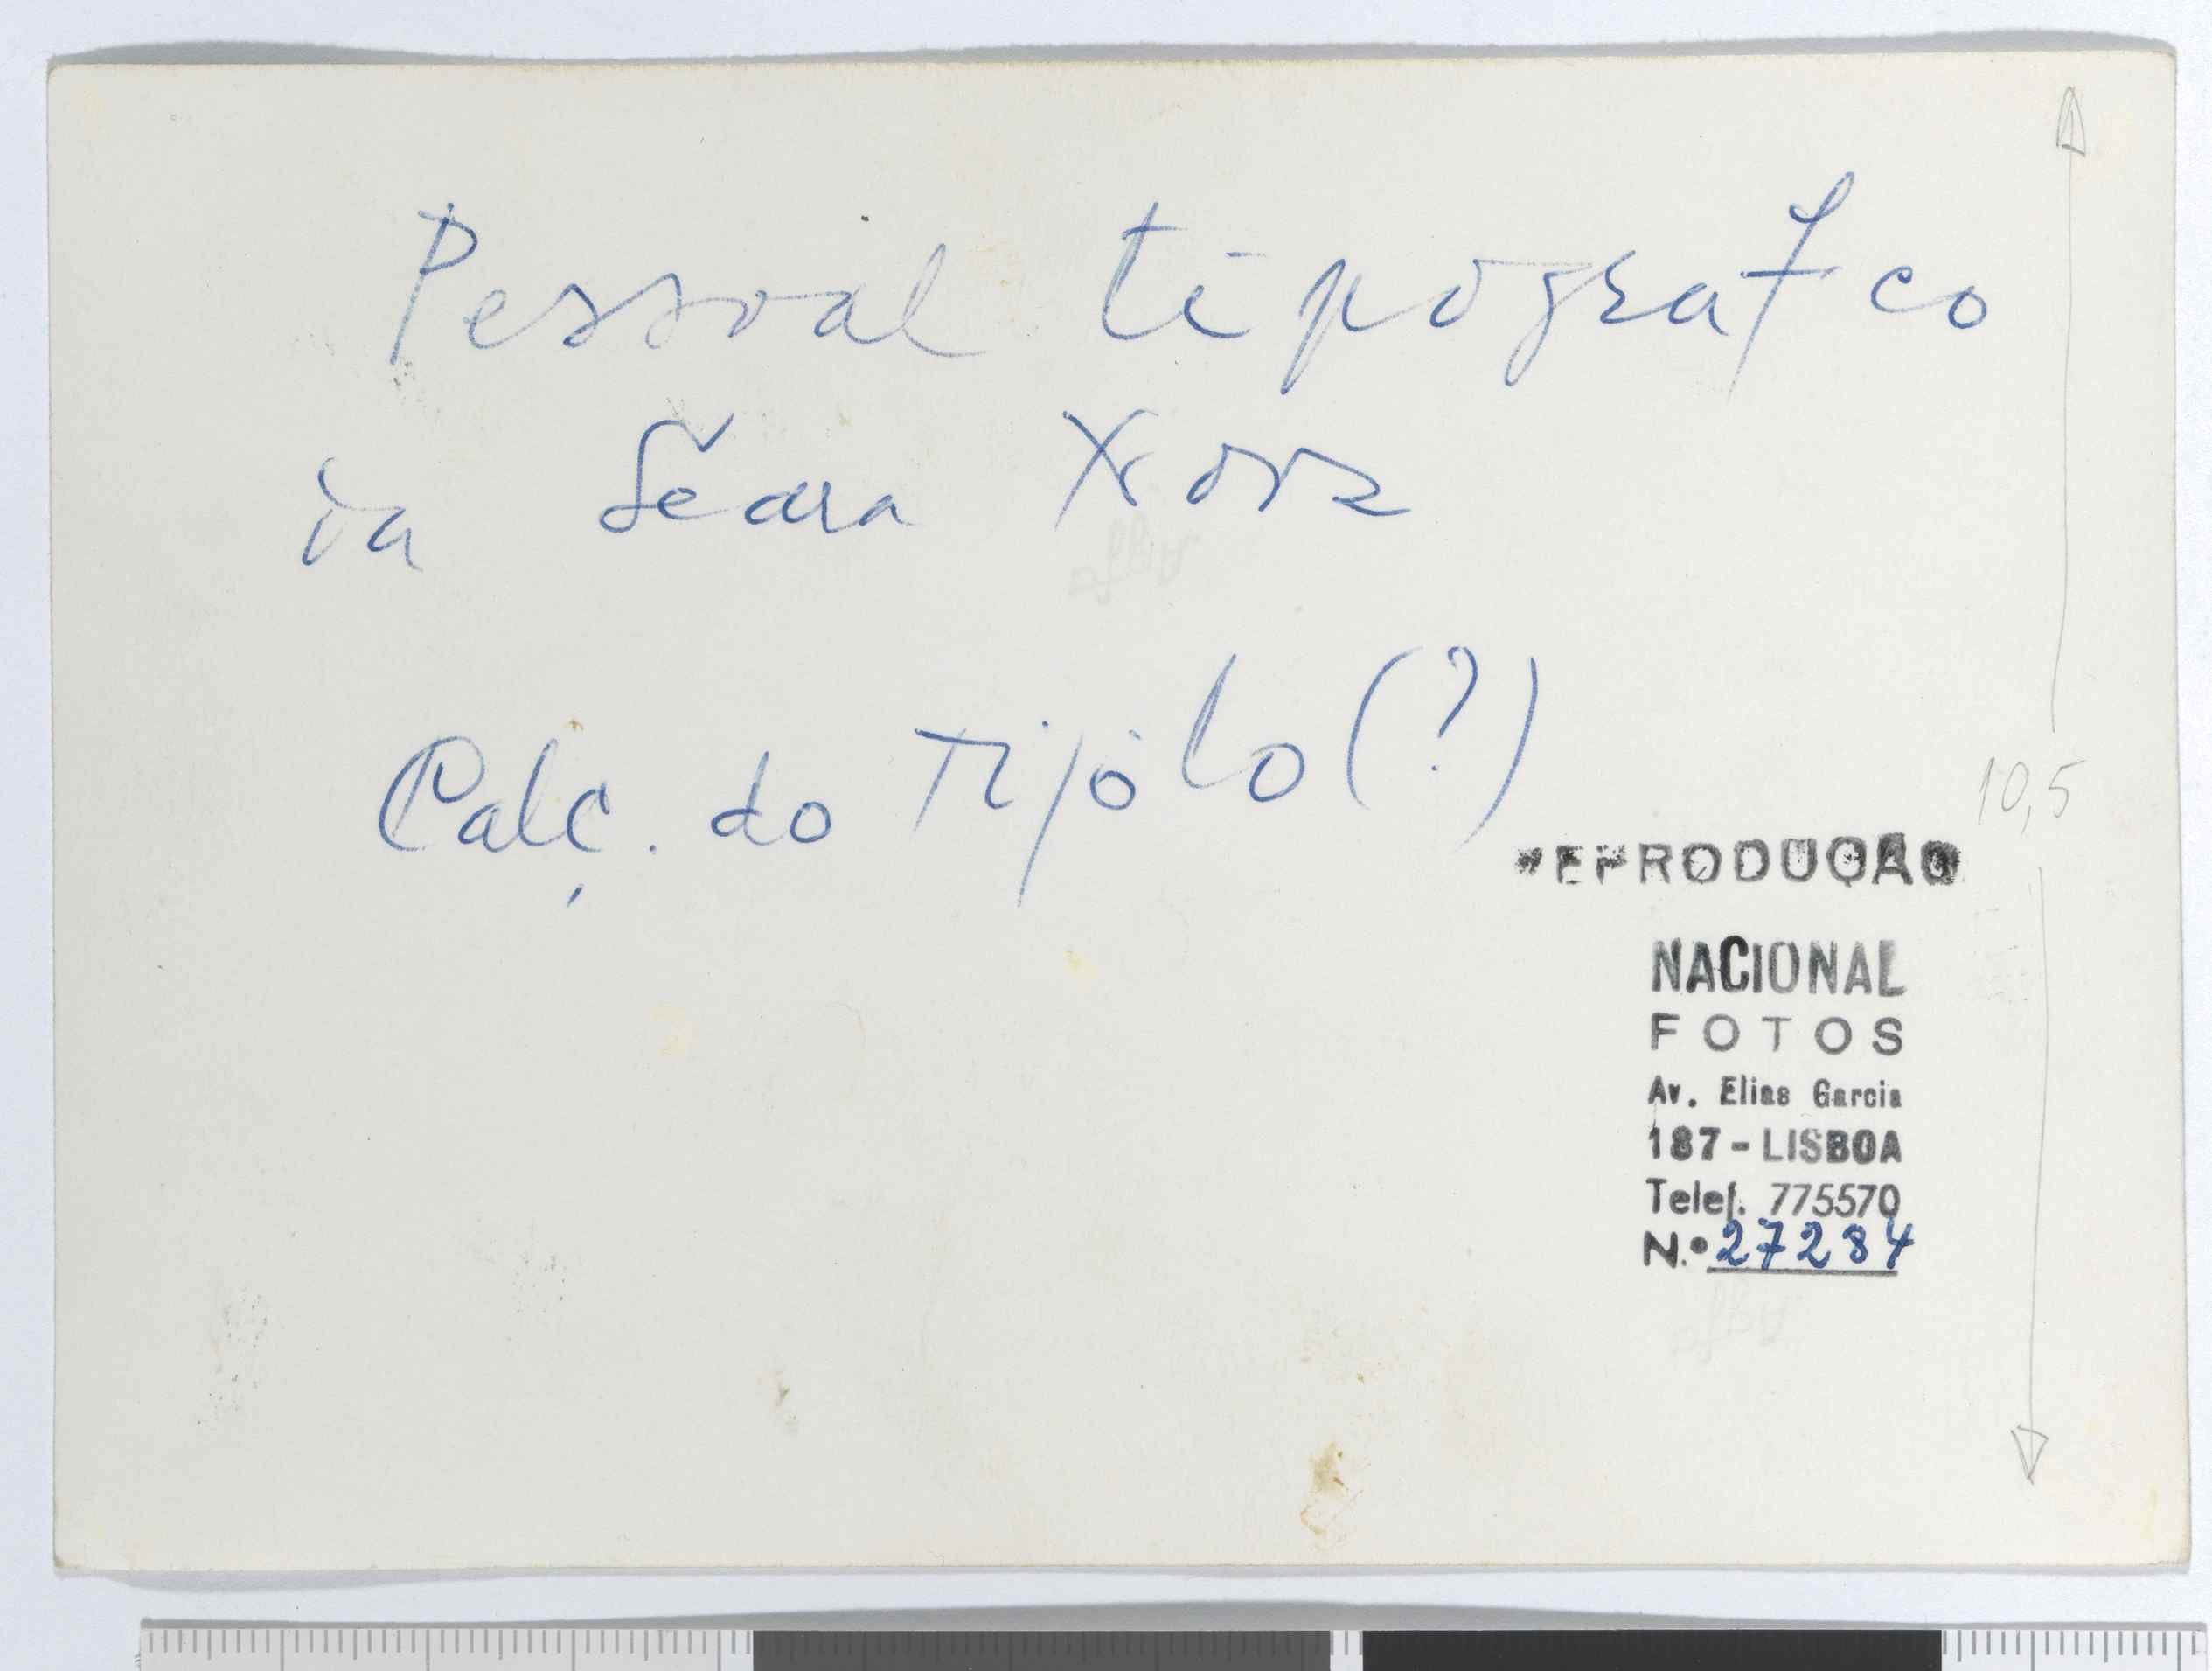 Pessoal tipografico
da Seara Nova
Calç. do Tijolo (?)
10,5
REPRODUÇÃO
NACIONAL
FOTOS
Av. Elias Garcia
187 - LISBOA
Telef. 775570
N.º 27284